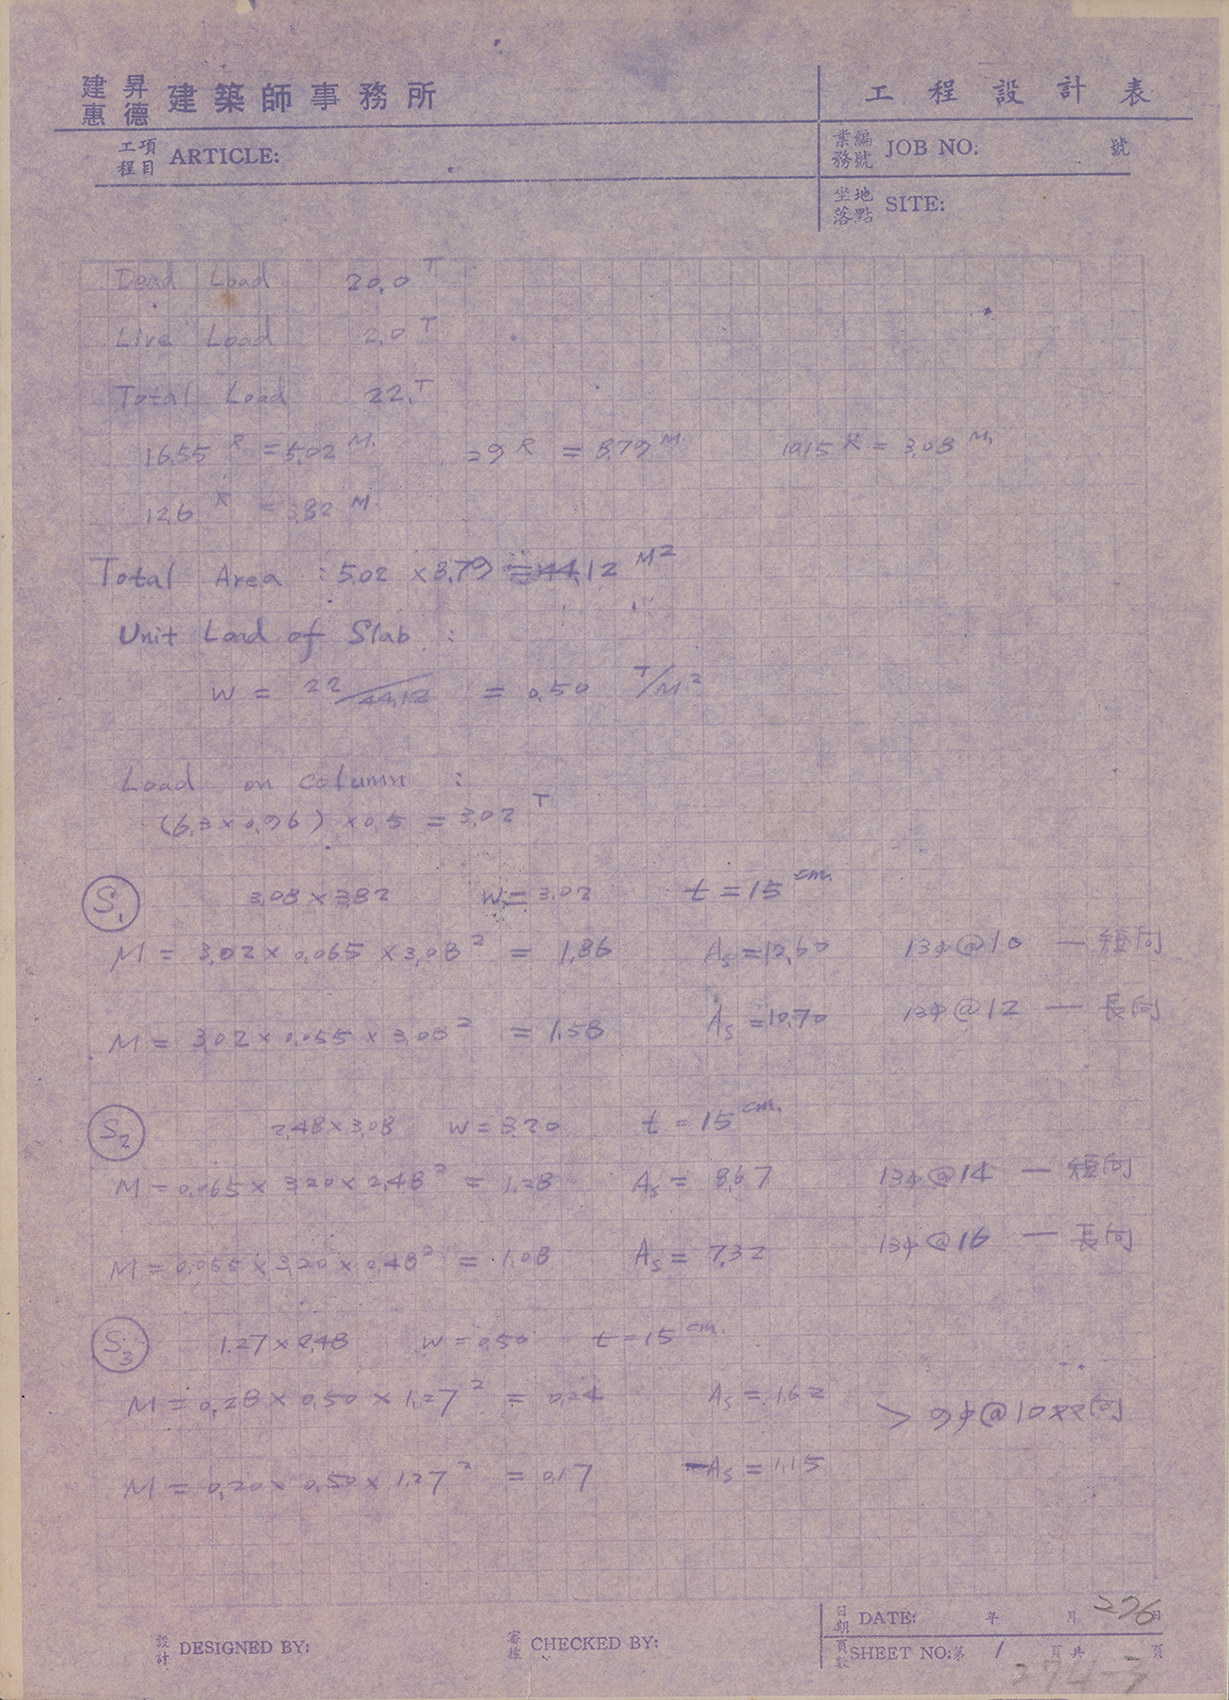 建昇
惠德 建築師事務所 工程設計表
工項
程目 ARTICLE: 業編
務號 JOB NO. 號
坐地
落點 SITE:
Dead Load 20.0 T
Live Load 2.0 T
Total Load 22. T
16.55 R = 5.02 M. 29 R = 8.79 M. 10.15 R = 3.08 M.
12.6 R = 3.82 M.
Total Area : 5.02 × 8.79 ≒ 44.12 M²
Unit Load of Slab :
W = 22/44.12 = 0.50 T/M²
Load on column :
(6.3 × 0.96) × 0.5 = 3.02 T
S₁ 3.08 × 3.82 W = 3.02 t = 15 cm.
M = 3.02 × 0.065 × 3.08² = 1.86 As = 12.60 13φ@10 — 短向
M = 3.02 × 0.055 × 3.08² = 1.58 As = 10.70 13φ@12 — 長向
S₂ 2.48 × 3.08 W = 3.20 t = 15 cm.
M = 0.065 × 3.20 × 2.48² = 1.28 As = 8.67 13φ@14 — 短向
M = 0.055 × 3.20 × 0.48² = 1.08 As = 7.32 13φ@16 — 長向
S₃ 1.27 × 2.48 W = 0.50 t = 15 cm.
M = 0.28 × 0.50 × 1.27² = 0.24 As = 1.62
> 9φ@10 向
M = 0.20 × 0.50 × 1.27² = 0.17 As = 1.15
設計 DESIGNED BY: 審核 CHECKED BY: 日期 DATE: 年 月 276 日
頁數 SHEET NO: 第 1 頁共 頁
274-3